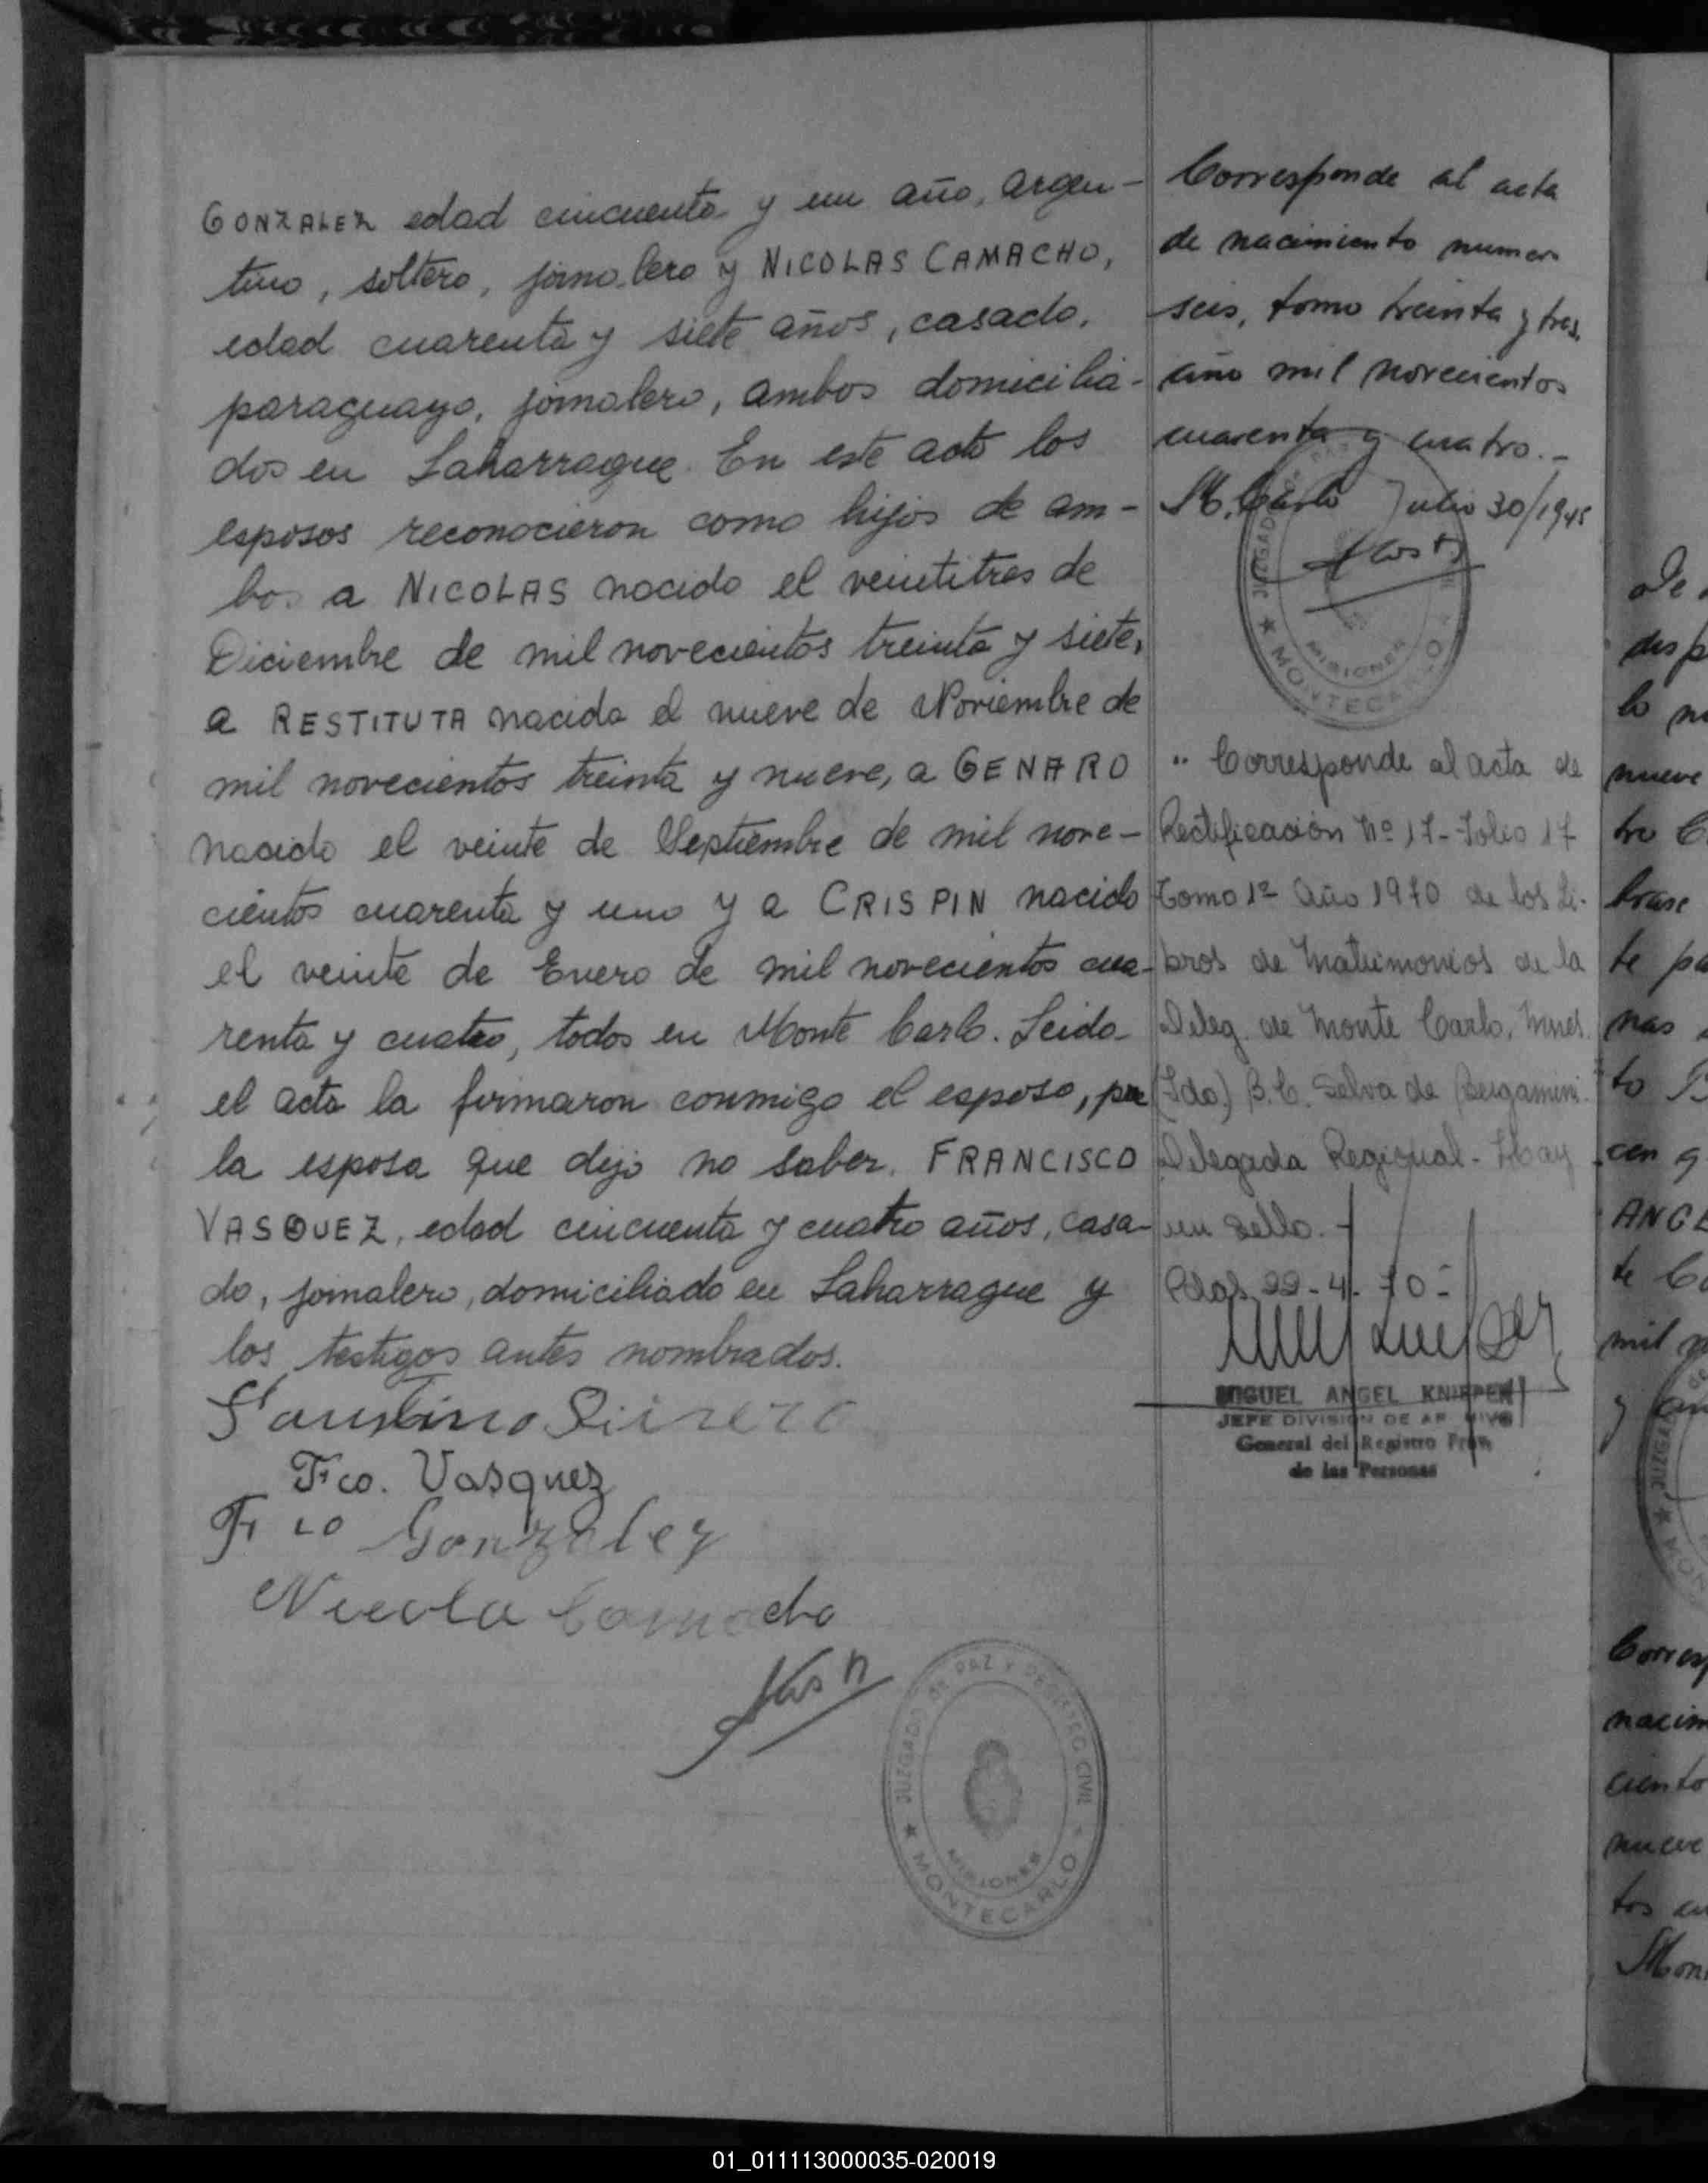 GONZALEZ edad cincuenta y un año, argen-
tino, soltero, jornalero y NICOLAS CAMACHO,
edad cuarenta y siete años, casado,
paraguayo, jornalero, ambos domicilia-
dos en Laharrague. En este acto los
esposos reconocieron como hijos de am-
bos a NICOLAS nacido el veintitres de
Diciembre de mil novecientos treinta y siete,
a RESTITUTA nacida el nueve de Noviembre de
mil novecientos treinta y nueve, a GENARO
nacido el veinte de Septiembre de mil nove-
cientos cuarenta y uno y a CRISPIN nacido
el veinte de Enero de mil novecientos cua-
renta y cuatro, todos en Monte Carlo. Leida
el acta la firmaron conmigo el esposo, por
la esposa que dijo no saber, FRANCISCO
VASQUEZ, edad cincuenta y cuatro años, casa-
do, jornalero, domiciliado en Laharrague y
los testigos antes nombrados.
Faustino
Fco. Vasquez
Fco Gonzalez
Nicola Camacho
JUZGADO DE PAZ Y REGISTRO CIVIL
MISIONES
★ MONTECARLO ★
Corresponde al acta
de nacimiento numero
seis, tomo treinta y tres,
año mil novecientos
cuarenta y cuatro.-
M. Carlo Julio 30/1945
JUZGADO DE PAZ
MISIONES
★ MONTECARLO
" Corresponde al acta de
Rectificación Nº 17- Folio 17
Tomo 1º Año 1970 de los Li-
bros de Matrimonios de la
Deleg. de Monte Carlo, Mnes.
(Fdo.) B.C. Selva de Bergamini
Delegada Regional- Hay
un sello.-
Pdas 22-4-70-
MIGUEL ANGEL KNIPPER
JEFE DIVISION DE ARCHIVO
General del Registro Prov.
de las Personas
De
disp
lo
nueve
tro
brase
te
nas
to
cen
ANGE
te
mil
y
JUZGA
Corresp
nacim
ciento
nueve
tos
Mon
01_011113000035-020019